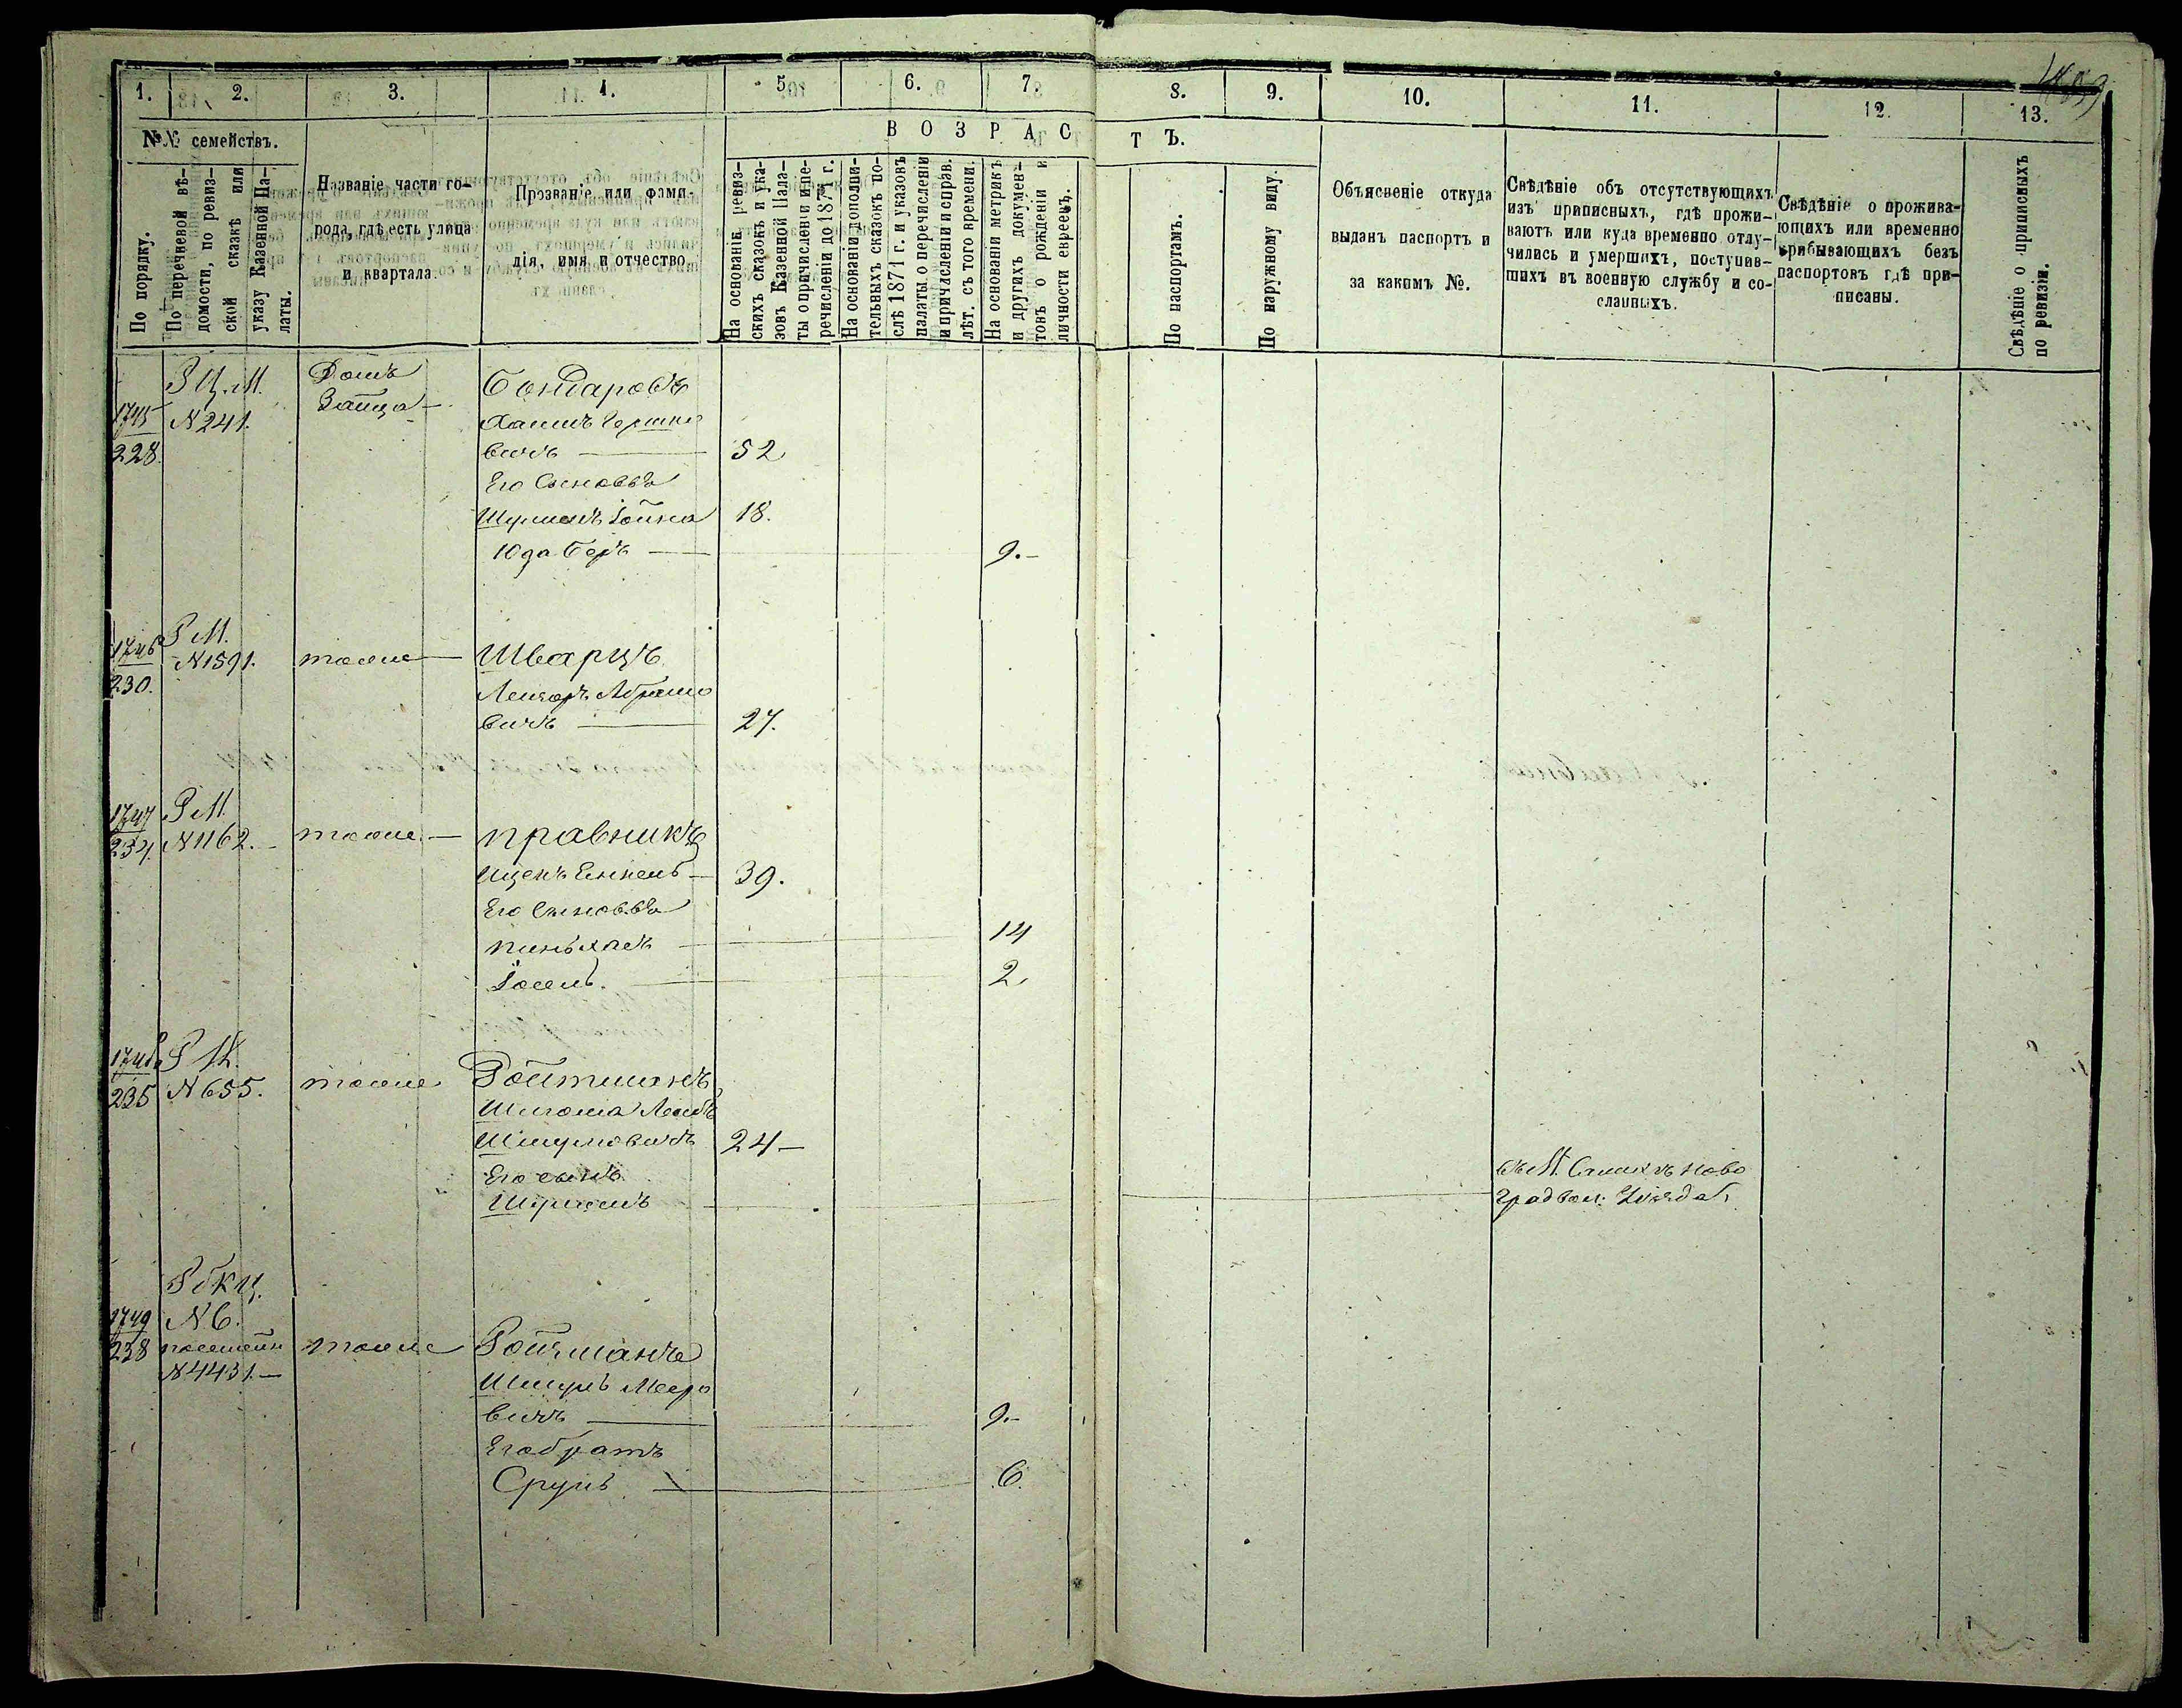 1. 2. 3. 4. 5. 6. 7. 8. 9. 10. 11. 12. 13.
№№ семействъ.
В О З Р А С Т Ъ.
По порядку.
По перечневой вѣ-
домости, по ревиз-
ской сказкѣ или
указу Казенной Па-
латы.
Названіе части го-
рода, гдѣ есть улица
и квартала.
Прозваніе или фами-
лія, имя и отчество.
На основаніи ревиз-
скихъ сказокъ и ука-
зовъ Казенной Пала-
ты о причисленіи и пе-
речисленіи до 1874 г.
На основаніи дополни-
тельныхъ сказокъ по-
слѣ 1871 г. и указовъ
палаты о перечисленіи
и причисленіи и справ.
лѣт. съ того времени.
На основаніи метрикъ
и другихъ докумен-
товъ о рожденіи и
личности евреевъ.
По паспортамъ.
По наружному виду.
Объясненіе откуда
выданъ паспортъ и
за какимъ №.
Свѣдѣніе объ отсутствующихъ
изъ приписныхъ, гдѣ прожи-
ваютъ или куда временно отлу-
чились и умершихъ, поступив-
шихъ въ военную службу и со-
сланныхъ.
Свѣдѣніе о прожива-
ющихъ или временно
прибывающихъ безъ
паспортовъ гдѣ при-
писаны.
Свѣдѣніе о приписныхъ
по ревизіи.
1745
228.
Р Ц. М.
N 241.
Домъ
Зайца —
Бондаровъ
Хаимъ Гершко
вичъ — 52
Его Сыновья
Шулимъ Іойна 18.
Юда Беръ — 9.-
1746
230.
Р М.
N 1591. тоже — Шварцъ
Лейзоръ Абрамо
вичъ — 27.
1747
234.
Р М.
N 1162. — тоже — Правникъ
Ицекъ Енкель — 39.
Его Сыновья
Пиньхасъ — 14
Іосель. — 2.
1748
235
N 655. тоже Ройтманъ
Шлиома Лейбъ
Шмулювичъ 24 —
Его сынъ
Шулимъ —
градвол. Уѣзда
1749
238
N 6.
посемейн
N 4431. —
тоже Ройтманъ
Шмуль Мееро
вичъ — 9.-
Его братъ
Сруль — 6.